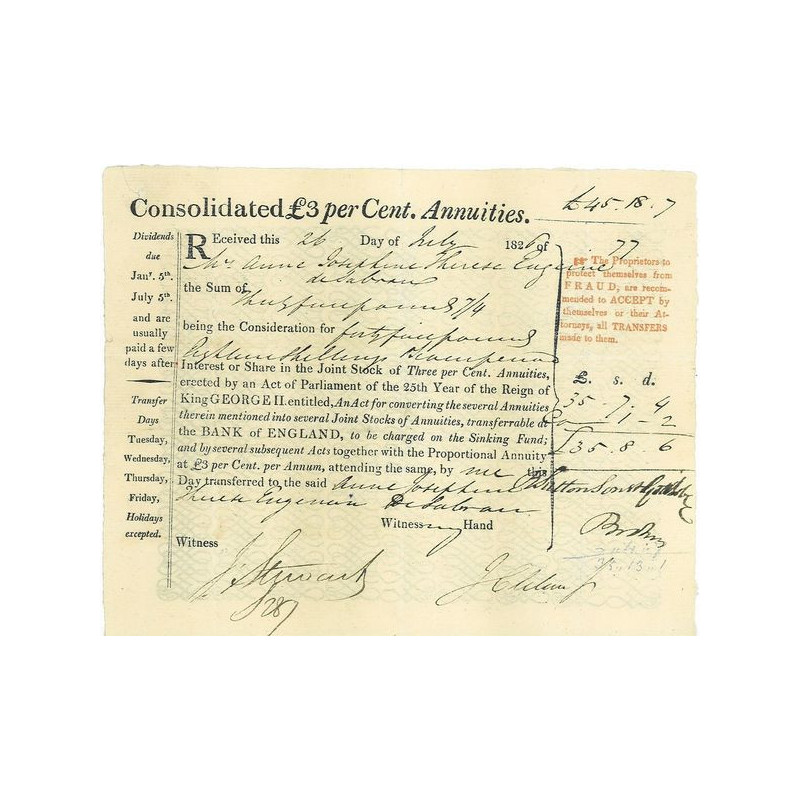 Consolidated £3 per Cent. Annuities.
£45.18.7
Dividends
due
Jany. 5th.
July 5th.
and are
usually
paid a few
days after
Transfer
Days
Tuesday,
Wednesday,
Thursday,
Friday,
Holidays
excepted.
REceived this 26 Day of July 1826 of
Anne Josephine Therese
the Sum of
being the Consideration for forty five pounds
Eighteen Shillings
Interest or Share in the Joint Stock of Three per Cent. Annuities,
erected by an Act of Parliament of the 25th Year of the Reign of
King GEORGE II. entitled, An Act for converting the several Annuities
therein mentioned into several Joint Stocks of Annuities, transferrable at
the BANK of ENGLAND, to be charged on the Sinking Fund;
and by several subsequent Acts together with the Proportional Annuity
at £3 per Cent. per Annum, attending the same, by me this
Day transferred to the said Anne Josephine
Therese Eugenia DeSabran
Witness my Hand
Witness
77
☞ The Proprietors to
protect themselves from
FRAUD, are recom-
mended to ACCEPT by
themselves or their At-
torneys, all TRANSFERS
made to them.
£. s. d.
35-7-4
1-2
£35.8.6